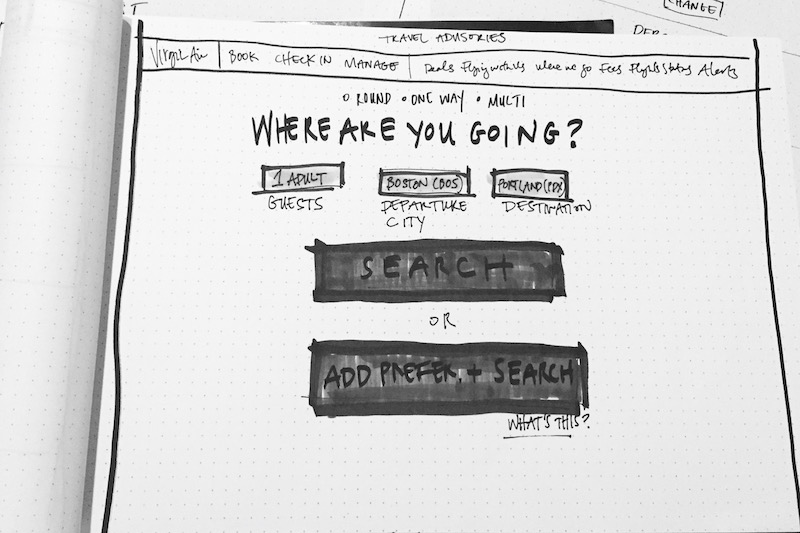 CHANGE
TRAVEL ADVISORIES
Virgin Air BOOK CHECK IN MANAGE Deals Flying with Us Where we go Fees Flight Status Alerts
ROUND ONE WAY MULTI
WHERE ARE YOU GOING?
1 ADULT BOSTON (BOS) PORTLAND (PDX)
GUESTS DEPARTURE CITY DESTINATION
SEARCH
OR
ADD PREFER. + SEARCH
WHAT'S THIS?